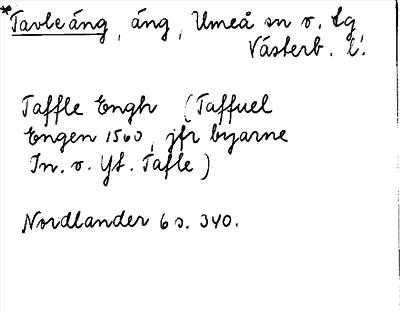 *Tavleäng, äng, Umeå sn o. tg
Västerb. l.
Taffle Engh (Taffuel
Engen 1560, jfr byarne
In. o. Yt. Tafle)
Nordlander 6 s. 340.